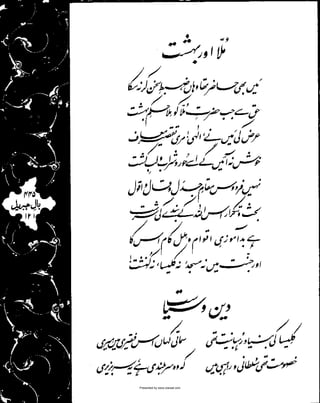 مُلّا اور بہشت
میں بھی حاضر تھا وہاں، ضبطِ سخن کر نہ سکا
حق سے جب حضرتِ مُلّا کو ملا حکمِ بہشت
عرض کی میں نے، الٰہی! مری تقصیر معاف
خوش نہ آئیں گے اسے حور و شراب و لبِ کشت
نہیں فردوس مقامِ جدل و قال و اقول
بحث و تکرار اس اللہ کے بندے کی سرشت
ہے بدآموزیِ اقوام و ملل کام اس کا
اور جنت میں نہ مسجد، نہ کلیسا، نہ کنشت!
دین و سیاست
کلیسا کی بنیاد رہبانیت تھی سماتی کہاں اس فقیری میں میری
خصومت تھی سلطانی و راہبی میں کہ وہ سربلندی ہے یہ سربزیری
۴۴۵
بالِ جبریل
۱۲۱